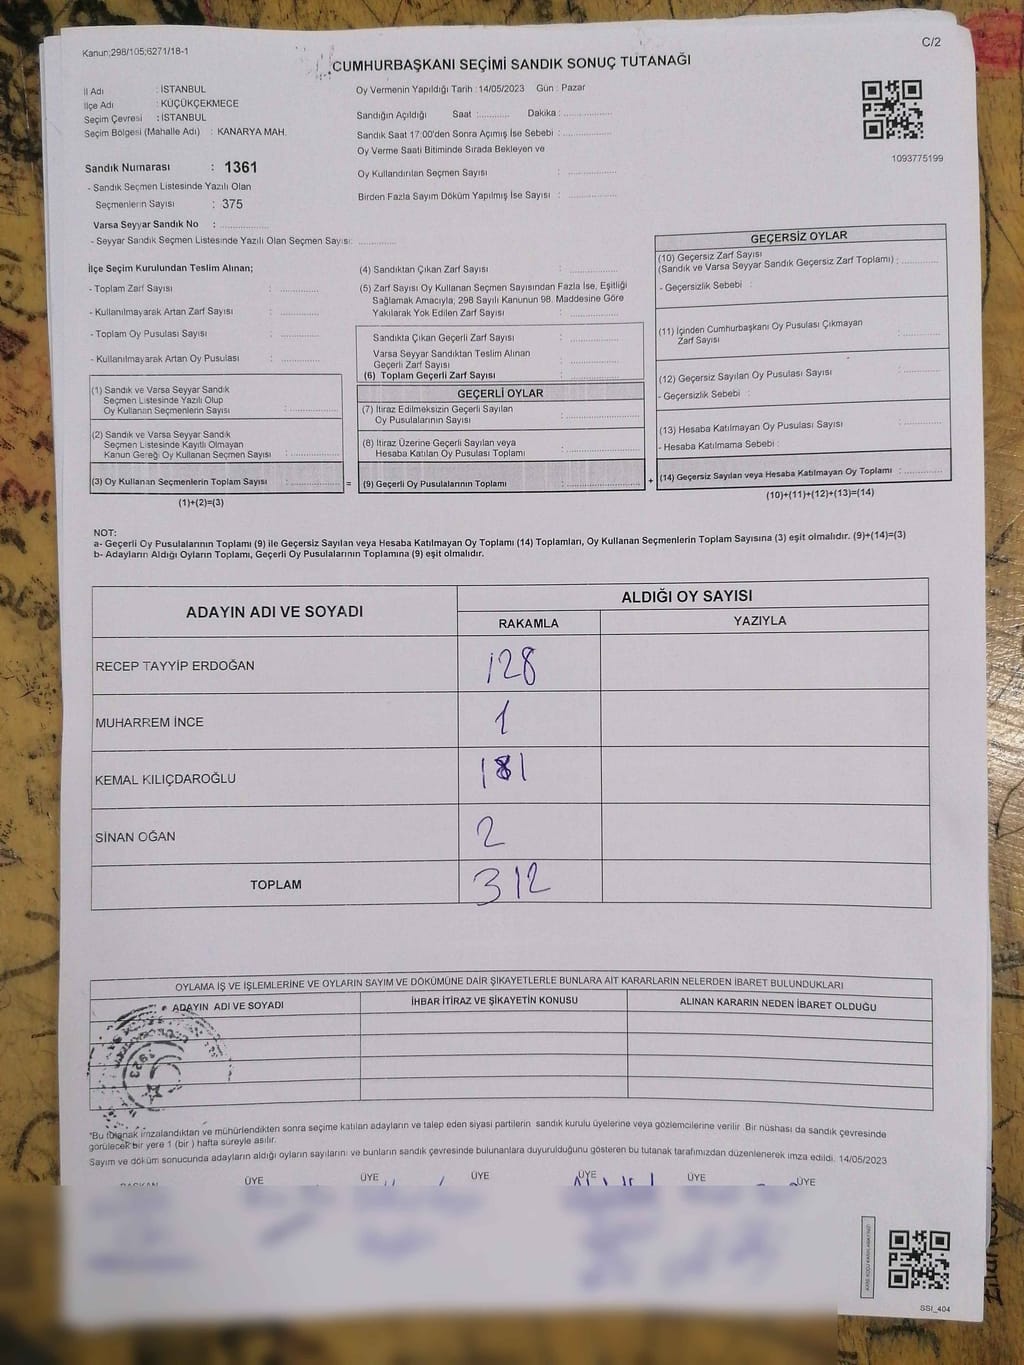 Kanun;298/105;6271/18-1
C/2
CUMHURBAŞKANI SEÇİMİ SANDIK SONUÇ TUTANAĞI
İl Adı : İSTANBUL
İlçe Adı : KÜÇÜKÇEKMECE
Seçim Çevresi : İSTANBUL
Seçim Bölgesi (Mahalle Adı) : KANARYA MAH.
Sandık Numarası : 1361
- Sandık Seçmen Listesinde Yazılı Olan
Seçmenlerin Sayısı : 375
Varsa Seyyar Sandık No : ................
- Seyyar Sandık Seçmen Listesinde Yazılı Olan Seçmen Sayısı: ............
Oy Vermenin Yapıldığı Tarih : 14/05/2023 Gün : Pazar
Sandığın Açıldığı Saat :.......... Dakika : ................
Sandık Saat 17:00'den Sonra Açımış İse Sebebi : ................
Oy Verme Saati Bitiminde Sırada Bekleyen ve
Oy Kullandırılan Seçmen Sayısı : ................
Birden Fazla Sayım Döküm Yapılmış İse Sayısı : ................
1093775199
İlçe Seçim Kurulundan Teslim Alınan;
- Toplam Zarf Sayısı : ............
- Kullanılmayarak Artan Zarf Sayısı : ............
- Toplam Oy Pusulası Sayısı : ............
- Kullanılmayarak Artan Oy Pusulası : ............
(1) Sandık ve Varsa Seyyar Sandık
Seçmen Listesinde Yazılı Olup
Oy Kullanan Seçmenlerin Sayısı : ................
(2) Sandık ve Varsa Seyyar Sandık
Seçmen Listesinde Kayıtlı Olmayan
Kanun Gereği Oy Kullanan Seçmen Sayısı : ................
(3) Oy Kullanan Seçmenlerin Toplam Sayısı : ................
(1)+(2)=(3)
=
(4) Sandıktan Çıkan Zarf Sayısı : ................
(5) Zarf Sayısı Oy Kullanan Seçmen Sayısından Fazla İse, Eşitliği
Sağlamak Amacıyla, 298 Sayılı Kanunun 98. Maddesine Göre
Yakılarak Yok Edilen Zarf Sayısı : ................
Sandıkta Çıkan Geçerli Zarf Sayısı : ................
Varsa Seyyar Sandıktan Teslim Alınan
Geçerli Zarf Sayısı : ................
(6) Toplam Geçerli Zarf Sayısı : ................
GEÇERLİ OYLAR
(7) İtiraz Edilmeksizin Geçerli Sayılan
Oy Pusulalarının Sayısı : ................
(8) İtiraz Üzerine Geçerli Sayılan veya
Hesaba Katılan Oy Pusulası Toplamı : ................
(9) Geçerli Oy Pusulalarının Toplamı : ................
+
GEÇERSİZ OYLAR
(10) Geçersiz Zarf Sayısı
(Sandık ve Varsa Seyyar Sandık Geçersiz Zarf Toplamı) : ............
- Geçersizlik Sebebi :
(11) İçinden Cumhurbaşkanı Oy Pusulası Çıkmayan
Zarf Sayısı : ............
(12) Geçersiz Sayılan Oy Pusulası Sayısı : ............
- Geçersizlik Sebebi :
(13) Hesaba Katılmayan Oy Pusulası Sayısı : ............
- Hesaba Katılmama Sebebi :
(14) Geçersiz Sayılan veya Hesaba Katılmayan Oy Toplamı : ............
(10)+(11)+(12)+(13)=(14)
NOT:
a- Geçerli Oy Pusulalarının Toplamı (9) ile Geçersiz Sayılan veya Hesaba Katılmayan Oy Toplamı (14) Toplamları, Oy Kullanan Seçmenlerin Toplam Sayısına (3) eşit olmalıdır. (9)+(14)=(3)
b- Adayların Aldığı Oyların Toplamı, Geçerli Oy Pusulalarının Toplamına (9) eşit olmalıdır.
ADAYIN ADI VE SOYADI
ALDIĞI OY SAYISI
RAKAMLA YAZIYLA
RECEP TAYYİP ERDOĞAN 128
MUHARREM İNCE 1
KEMAL KILIÇDAROĞLU 181
SİNAN OĞAN 2
TOPLAM 312
OYLAMA İŞ VE İŞLEMLERİNE VE OYLARIN SAYIM VE DÖKÜMÜNE DAİR ŞİKAYETLERLE BUNLARA AİT KARARLARIN NELERDEN İBARET BULUNDUKLARI
ADAYIN ADI VE SOYADI İHBAR İTİRAZ VE ŞİKAYETİN KONUSU ALINAN KARARIN NEDEN İBARET OLDUĞU
1923
*Bu tutanak imzalandıktan ve mühürlendikten sonra seçime katılan adayların ve talep eden siyasi partilerin sandık kurulu üyelerine veya gözlemcilerine verilir. Bir nüshası da sandık çevresinde
görülecek bir yere 1 (bir ) hafta süreyle asılır.
Sayım ve döküm sonucunda adayların aldığı oyların sayılarını ve bunların sandık çevresinde bulunanlara duyurulduğunu gösteren bu tutanak tarafımızdan düzenlenerek imza edildi. 14/05/2023
BAŞKAN ÜYE ÜYE ÜYE ÜYE ÜYE ÜYE
SSI_404